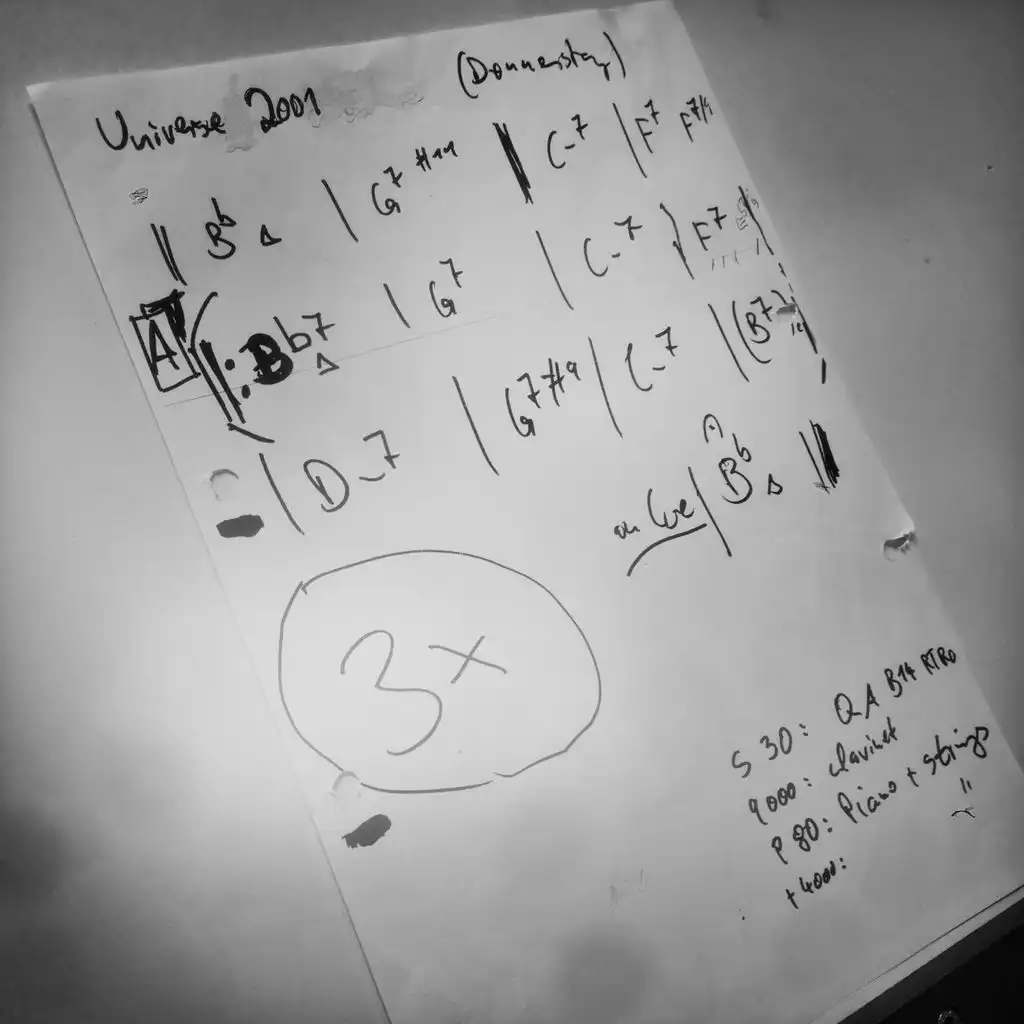 Universe 2001 (Donnerstag)
|| Bb Δ | G7 #11 || C-7 | F7 F7/9
A ||: Bb7 Δ | G7 | C-7 | F7 |
| D-7 | G7#9 | C-7 | (B7
| Bb Δ ||
3x
S 30: QA B14 RTRO
9000: clavinet
P 80: Piano + strings
+4000: "